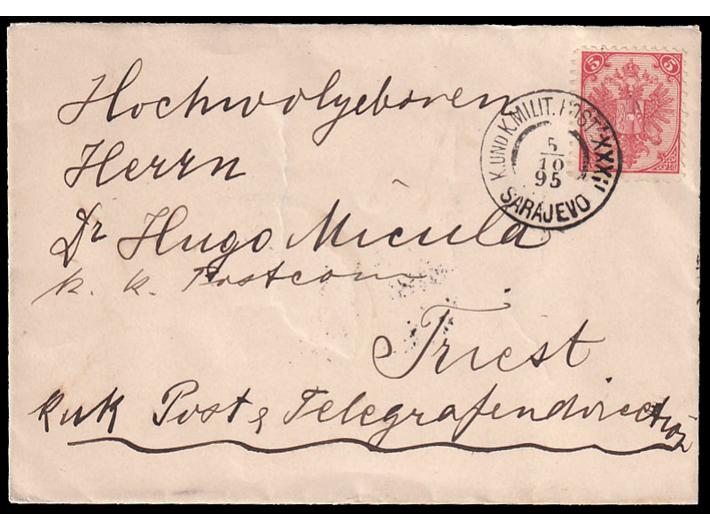 Hochwolgeboren
Herrn
Dr Hugo Micula
k. k. Postcom
Triest
kuk Post & Telegrafendirection
5 5
K. UND K. MILIT. POST XXXII
5
10
95
SARAJEVO